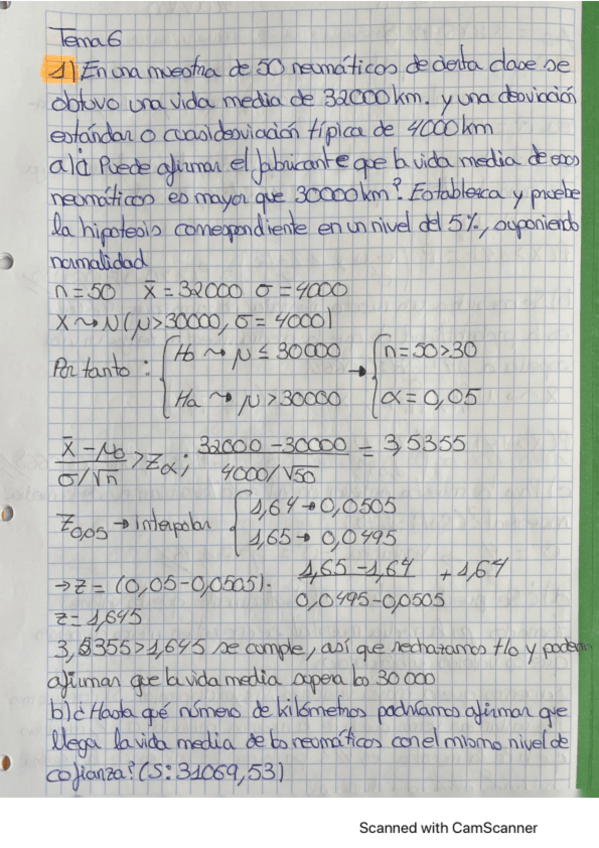 Tema 6
1) En una muestra de 50 neumáticos de cierta clase se
obtuvo una vida media de 32000 km. y una desviación
estándar o cuasidesviación típica de 4000 km
a) ¿Puede afirmar el fabricante que la vida media de esos
neumáticos es mayor que 30000 km? Establezca y pruebe
la hipótesis correspondiente en un nivel del 5%, suponiendo
normalidad
n = 50 x̄ = 32000 σ = 4000
X ~> N(μ>30000, σ = 4000)
Por tanto : { Ho ~> μ ≤ 30000 → { n = 50 > 30
Ha ~> μ > 30000 α = 0,05
(x̄ - μo)/(σ/√n) > Zα; (32000 - 30000)/(4000/√50) = 3,5355
Z0,05 → interpolar { 1,64 → 0,0505
1,65 → 0,0495
→ z = (0,05 - 0,0505) · (1,65 - 1,64)/(0,0495 - 0,0505) + 1,64
z = 1,645
3,5355 > 1,645 se cumple, así que rechazamos Ho y podemos
afirmar que la vida media supera los 30 000
b) ¿Hasta qué número de kilómetros podríamos afirmar que
llega la vida media de los neumáticos con el mismo nivel de
cofianza? (S: 31069,53)
Scanned with CamScanner